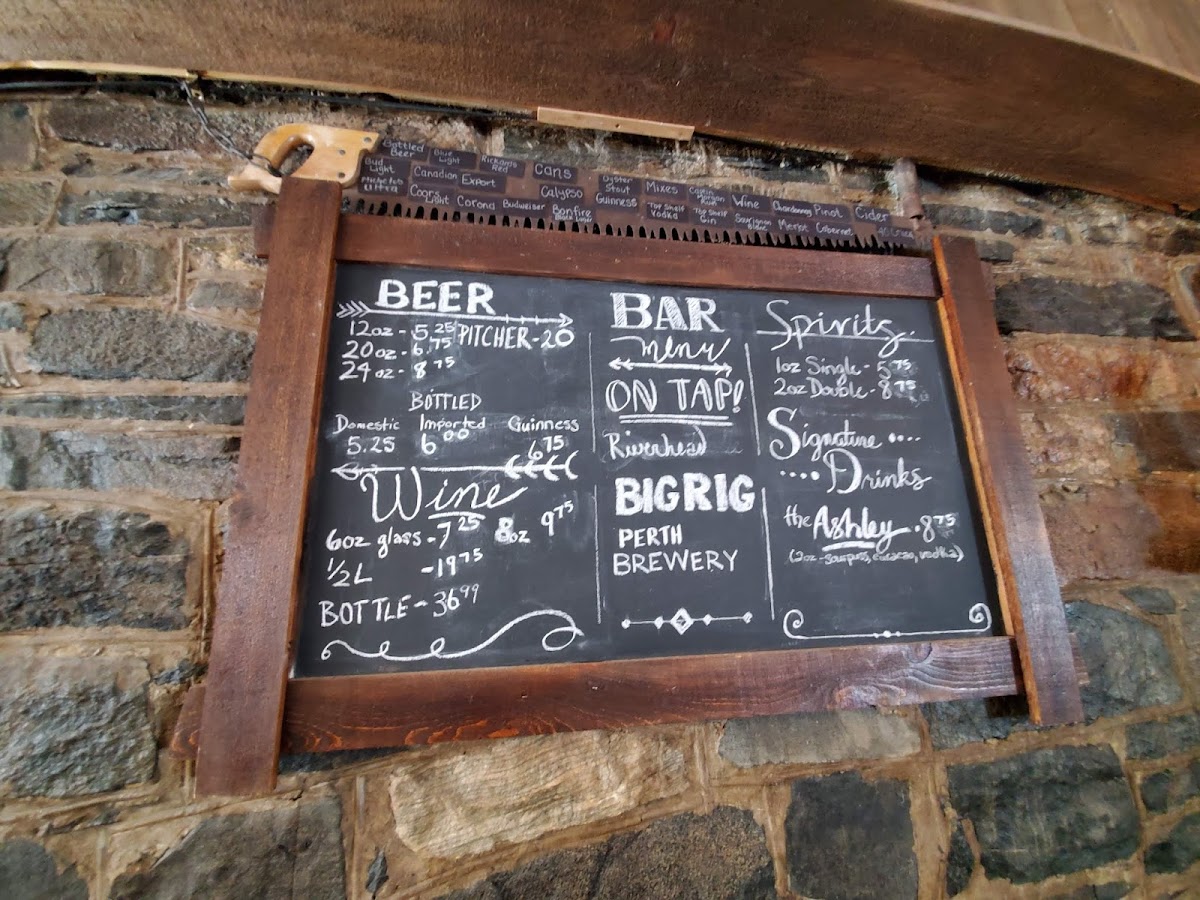 Bottled Beer
Blue Light
Rickards Red
Cans
Oyster Stout
Mixes
Captain Morgan Rum
Wine
Chardonnay
Pinot
Cider
Bud Light
Canadian
Export
Calypso
Guinness
Top Shelf Vodka
Top Shelf Gin
Sauvignon Blanc
Merlot
Cabernet
Michelob Ultra
Coors Light
Corona
Budweiser
Bonfire
BEER
12oz - 5.25
20oz - 6.75
24oz - 8 75
PITCHER-20
BOTTLED
Domestic Imported Guinness
5.25 6 00 6 75
Wine
6oz glass - 7 25 8oz 9 75
1/2 L - 19 75
BOTTLE - 36 99
BAR
Menu
ON TAP!
Riverhead
BIG RIG
PERTH
BREWERY
Spirits..
1oz Single - 5 75
2oz Double - 8 75
Signature ....
.... Drinks
the Ashley . 8 75
(2oz - sourpuss, curacao, vodka)